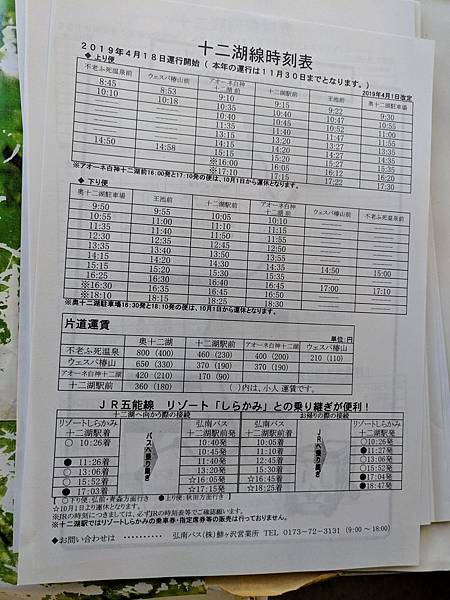 十二湖線時刻表
2019年4月18日運行開始（本年の運行は11月30日までとなります。）
◆上り便 2019年4月1日改定
不老ふ死温泉前 ウェスパ椿山前 アオーネ白神十二湖前 十二湖駅前 王池前 奥十二湖駐車場
8:45 8:53 9:10 9:15 9:22 9:30
10:10 10:18 10:35 10:40 10:47 10:55
10:40 10:45 10:52 11:00
11:35 11:40 11:47 11:55
14:15 14:20 14:27 14:35
14:50 14:58 15:15 15:20 15:27 15:35
※16:00 16:05 16:12 16:20
※17:10 17:15 17:22 17:30
※アオーネ白神十二湖前16:00発と17:10発の便は、10月1日から運休となります。
◆下り便
奥十二湖駐車場 王池前 十二湖駅前 アオーネ白神十二湖前 ウェスパ椿山前 不老ふ死温泉前
9:50 9:55 10:05 10:10
10:55 11:00 11:10 11:15
11:35 11:40 11:50 11:55
12:30 12:35 12:45 12:50
13:35 13:40 13:50 13:55
14:15 14:20 14:30 14:35 14:50 15:00
15:15 15:20 15:30 15:35
16:25 16:30 16:40 16:45 17:00 17:10
※16:30 16:35 16:45 16:50
※18:10 18:15 18:25 18:30
※奥十二湖駐車場16:30発と18:10発の便は、10月1日から運休となります。
片道運賃 単位：円
奥十二湖 十二湖駅前 アオーネ白神十二湖 ウェスパ椿山
不老ふ死温泉 800（400） 460（230） 400（200） 210（110）
ウェスパ椿山 650（330） 370（190） 370（190）
アオーネ白神十二湖 420（210） 170（90）
十二湖駅前 360（180） （ ）内は、小人運賃です。
JR五能線 リゾート「しらかみ」との乗り継ぎが便利！
十二湖へ向かう際の接続 お帰りの際の接続
リゾートしらかみ十二湖駅着 バスへ乗り継ぎ 弘南バス十二湖駅前発 弘南バス十二湖駅前着 JRへ乗り継ぎ リゾートしらかみ十二湖駅発
○ 10:26着 10:40発 10:05着 ○ 10:26発
10:45発 11:10着 ●11:27発
● 11:26着 11:40発 12:45着 ○ 13:06発
○ 13:06着 13:20発 15:30着 ○ 15:52発
○ 15:52着 ☆16:05発 ☆16:45着 ●17:04発
● 17:03着 ☆17:15発 ☆18:25着 ●18:47発
【 ○下り便：弘前・青森方面行き ●上り便：秋田方面行き 】
☆10月1日より運休となります。
※JRの時刻につきましては、必ずJRの時刻表等でご確認願います。
※十二湖駅ではリゾートしらかみの乗車券・指定席券等の販売は行っておりません。
◆お問い合わせは ………… 弘南バス（株）鯵ヶ沢営業所 TEL 0173-72-3131（9:00 ～ 18:00）